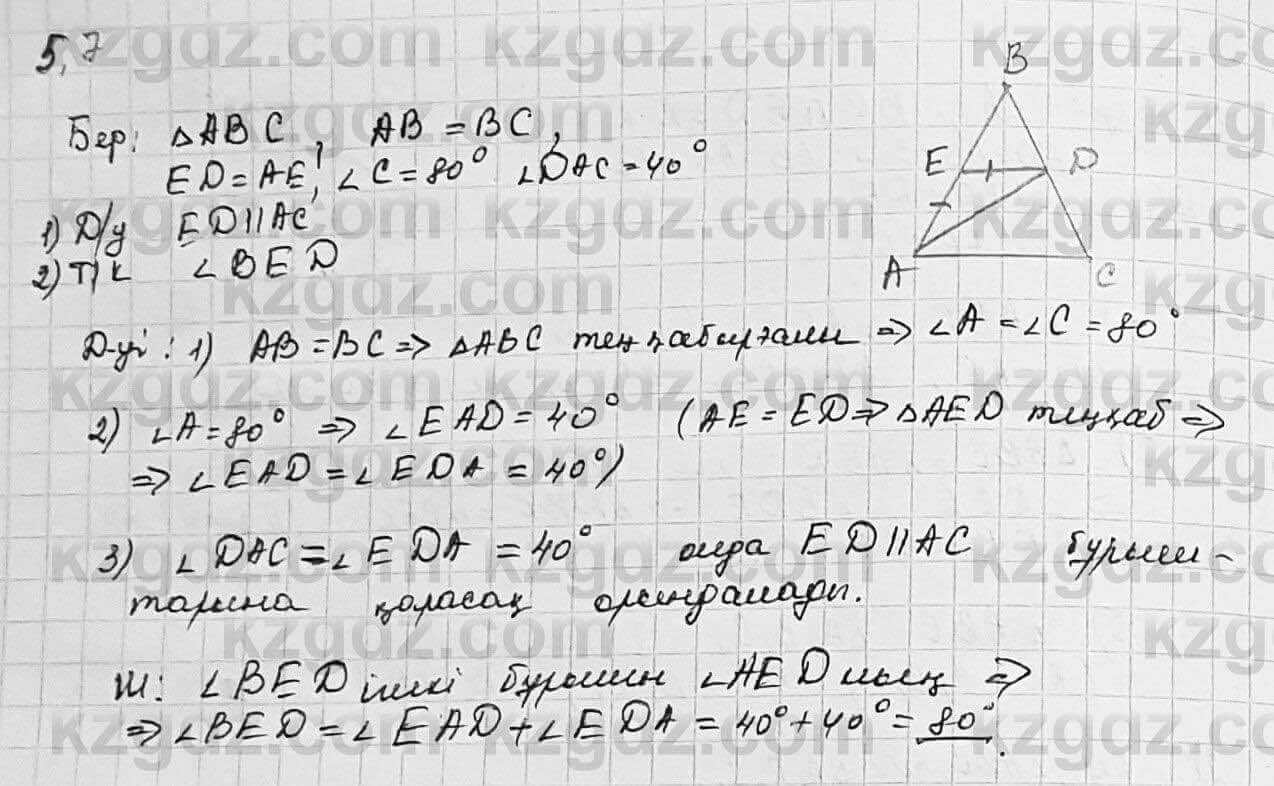 5,7
Бер: △ABC, AB = BC,
ED = AE, ∠C = 80° ∠DAC = 40°
1) Д/у ED || AC
2) Т/к ∠BED
B
E D
A C
Д-уі: 1) AB = BC => △ABC теңқабырғалы => ∠A = ∠C = 80°
2) ∠A = 80° => ∠EAD = 40° (AE = ED => △AED теңқаб =>
=> ∠EAD = ∠EDA = 40°)
3) ∠DAC = ∠EDA = 40° онда ED || AC бұрыш-
тарына қарасақ орындалады.
Ж: ∠BED ішкі бұрышы ∠AED ның =>
=> ∠BED = ∠EAD + ∠EDA = 40° + 40° = 80°.
kzgdz.com